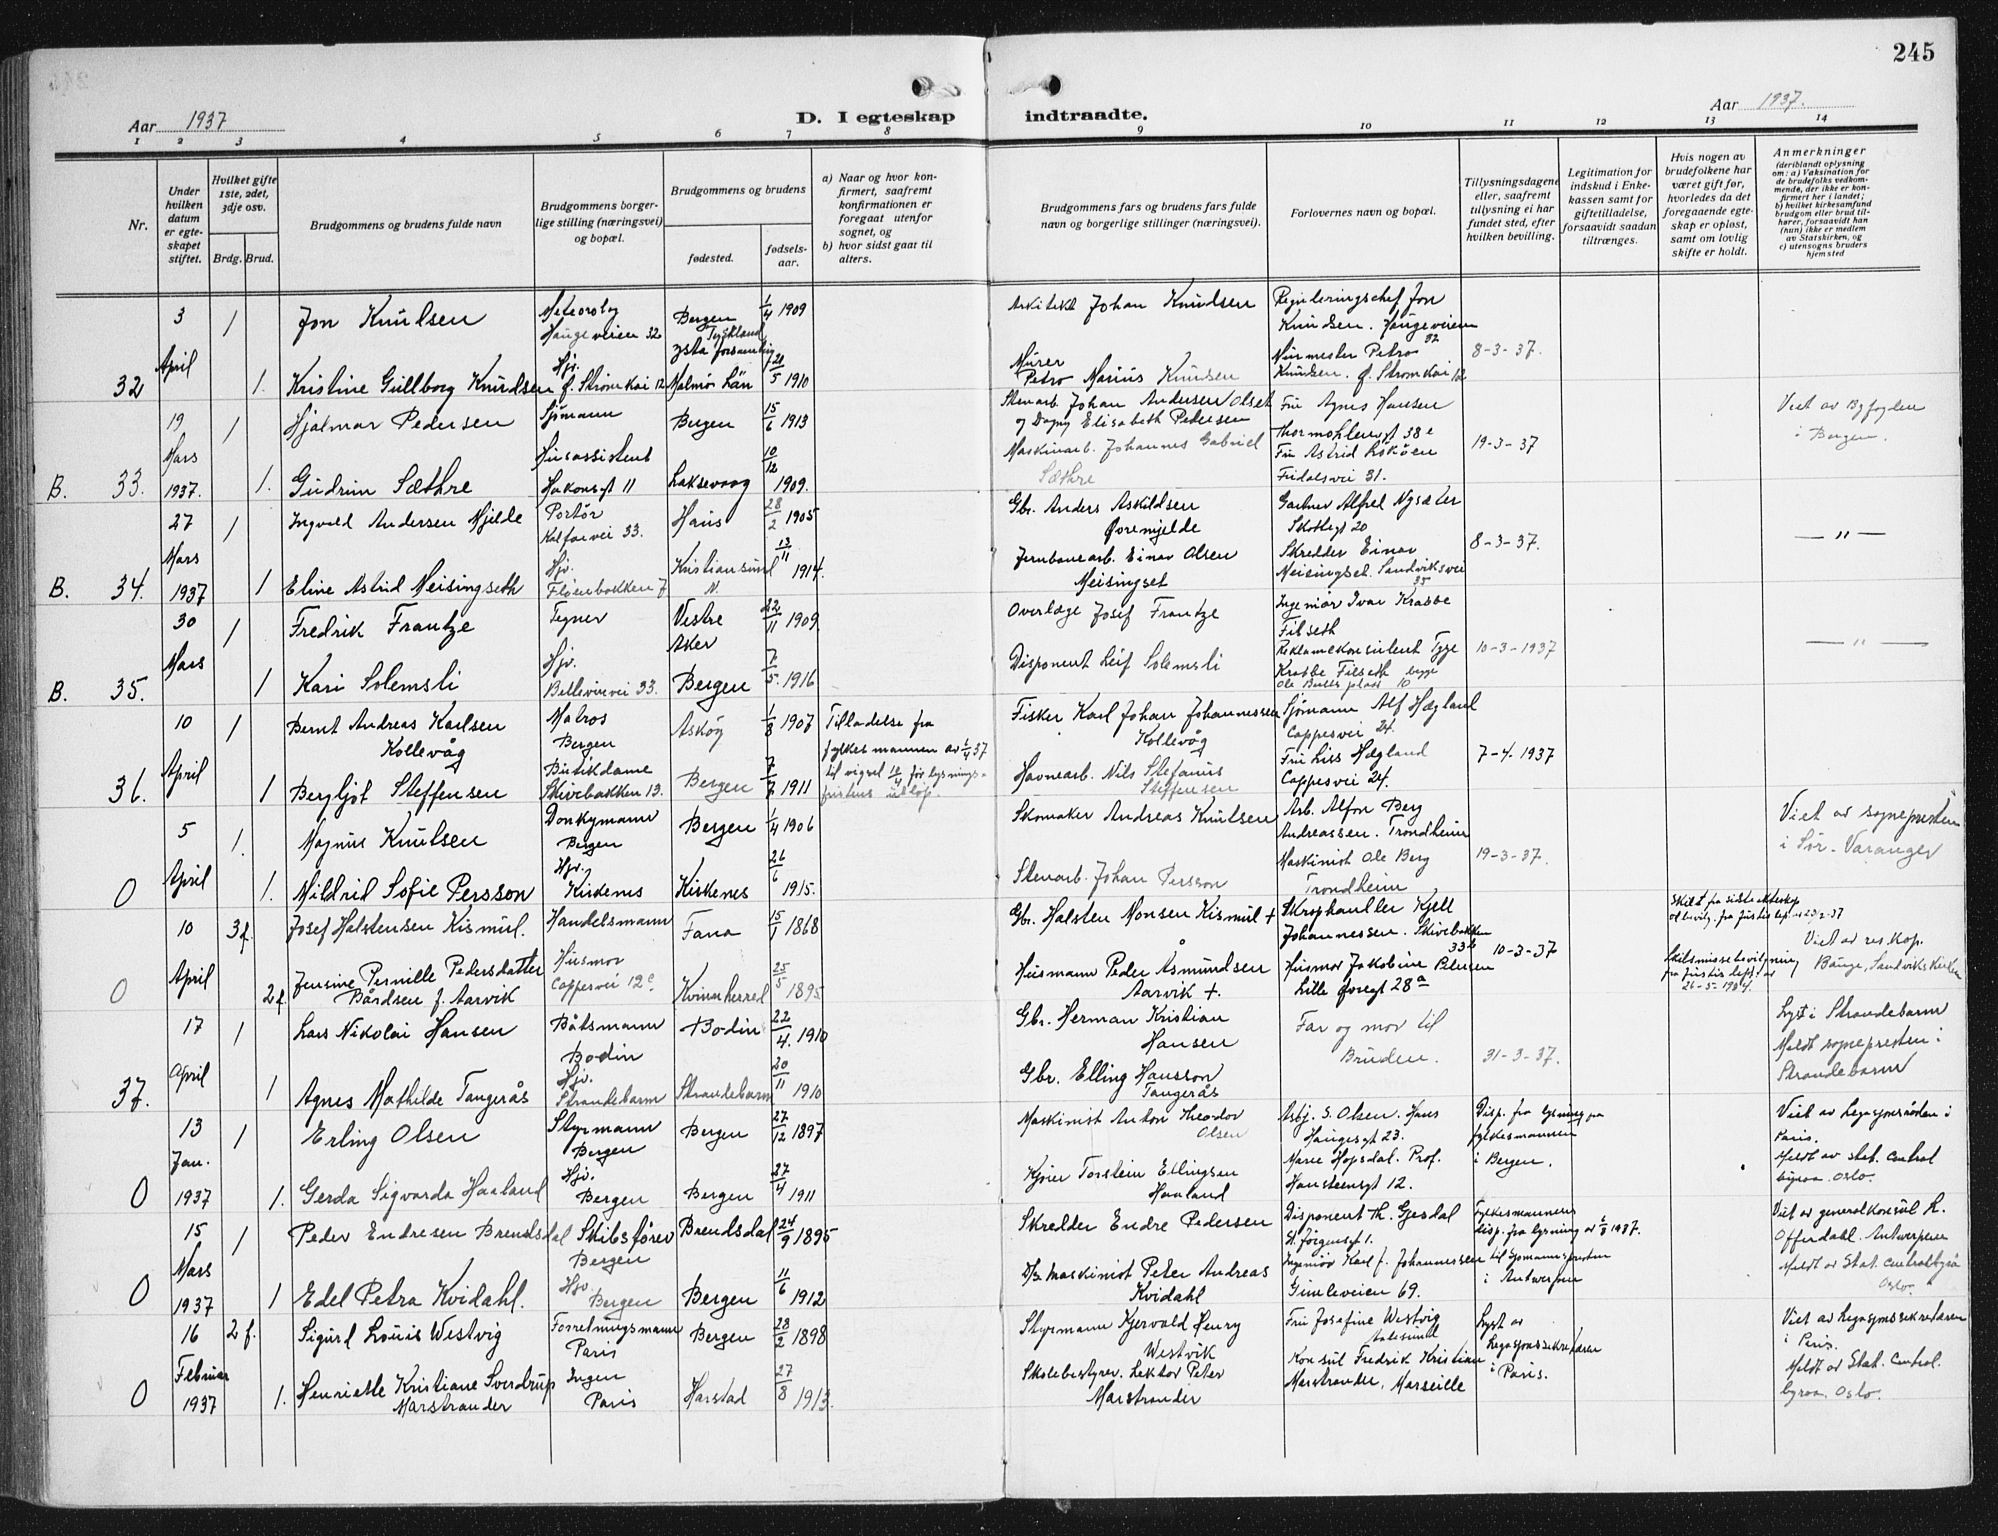 245
Aar 1937
D. I egteskap
indtraadte.
Aar 1937.
1 2 3 4 5 6 7 8 9 10 11 12 13 14
Nr.
Under hvilken datum er egte-skapet stiftet.
Hvilket gifte 1ste, 2det, 3dje osv.
Brdg. Brud.
Brudgommens og brudens fulde navn
Brudgommens borger-lige stilling (næringsvei) og bopæl.
Brudgommens og brudens
fødested.
fødsels-aar.
a) Naar og hvor kon-firmert, saafremt konfirmationen er foregaat utenfor sognet, og
b) hvor sidst gaat til alters.
Brudgommens fars og brudens fars fulde navn og borgerlige stillinger (næringsvei).
Forlovernes navn og bopæl.
Tillysningsdagene eller, saafremt tillysning ei har fundet sted, efter hvilken bevilling.
Legitimation for indskud i Enke-kassen samt for giftetilladelse, forsaavidt saadan tiltrænges.
Hvis nogen av brudefolkene har været gift før, hvorledes da det foregaaende egte-skap er opløst, samt om lovlig skifte er holdt.
Anmerkninger
(deriblandt oplysning om: a) Vaksination for de brudefolks vedkom-mende, der ikke er kon-firmert her i landet;
b) hvilket kirkesamfund brudgom eller brud til-hører, forsaavidt han (hun) ikke er medlem av Statskirken, og
c) utensogns bruders hjemsted
32 3 April
1 Jon Knudsen Meteorolog Haugeveien 32 Bergen 1/4 1909
Arkitekt Johan Knudsen
Reguleringschef Jon Knudsen. Haugeveien 32
1. Kristine Gullborg Knudsen Hjv. Ø. Strømkai 12 Malmøs Län 5 1910
Murer Petro Marius Knudsen
Murmester Petro Knudsen. Ø. Strømkai 12
8-3-37.
B. 33. 19 Mars 1937.
1 Hjalmar Pedersen Sjømann Bergen 15/6 1913
Stenarb. Johan Andersen Olset og Dagny Elisabeth Pedersen
Fru Agnes Hansen Thormøhlensgt 38e
1. Gudrun Sæthre Husassistent Hakonsgt 11 Laksevaag 10/12 1909.
Maskinarb. Johannes Gabriel Sæthre
Fru Astrid Fridalsvei 31.
19-3-37
Viet av Byfogden i Bergen.
B. 34. 27 Mars 1937
1 Ingvald Andersen Mjelde Portør Kalfarvei 33. Haus 28/2 1905
Gbr. Anders Askildsen Øvremjelde
Gartner Alfred Nysæter 20
1 Eline Astrid Meisingseth Hjv. Fløienbakken 7 Kristiansund N. 13/11 1914.
Jernbanearb. Einar Olsen Meisingset
Skredder Einar Meisingset. Sandviksvei 35
8-3-37.
— " —
B. 35. 30 Mars
1 Fredrik Frantze Tegner Vestre Aker 22/11 1909
Overlæge Josef Frantze
Ingeniør Ivar Krabbe Filseth
1 Kari Solemsli Hjv. Bellevuevei 33. Bergen 7/5. 1916
Disponent Leif Solemsli
Reklamekonsulent Tyge Krabbe Filseth begge Ole Bulls plass 10
10-3-1937
— " —
36. 10 April
1 Bernt Andreas Karlsen Kollevåg Matros Bergen Askøy 1/8 1907
Tilladelse fra fylkesmannen av 1/4 37 til vigsel 10/4 før lysnings-fristens utløp.
Fisker Karl Johan Johannessen Kollevåg
Sjømann Alf Hægland Cappesvei 24.
1 Bergljot Steffensen Butikdame Skivebakken 13. Bergen 7/7 1911
Havnearb. Nils Stefanus Steffensen
Fru Liss Hægland Cappesvei 24.
7-4. 1937
0 5 April
1. Magnus Knutsen Donkymann Bergen Bergen 1/4 1906
Skomaker Andreas Knutsen
Arb. Alfon Berg Andreassen. Trondheim
1. Mildrid Sofie Persson Hjv. Kirkenes Kirkenes 26/6 1915.
Stenarb. Johan Persson
Maskinist Ole Berg Trondheim
19-3-37.
Viet av sognepresten i Sør-Varanger
0 10 April
3f. Josef Halstensen Kismul. Handelsmann Fana 15/1 1868
Gbr. Halsten Monsen Kismul +
Skraphandler Kjell Johannessen. Skivebakken 33b
2f. Jensine Pernille Pedersdatter Bårdsen f. Aarvik Husmor Cappesvei 12c Kvinnherred 25/5 1895
Husmann Peder Åsmundsen Aarvik +.
Husmor Jakobine Petersen Lille Øvregt 28a
10-3-37
Skilt fra siste ekteskap
Skilsmissebevilgning fra justisdept. av 26-5-1934.
Viet av res. kap. Bauge, Sandvikskirken
37. 17 April
1 Lars Nikolai Hansen Båtsmann Bodin Bodin 22/4. 1910
Gbr. Herman Kristian Hansen
Far og mor til Bruden.
1 Agnes Mathilde Tangerås Hjv. Strandebarm Strandebarm 20/11 1910
Gbr. Elling Hansson Tangerås
31-3-37.
Lyst i Strandebarm Meldt sognepresten i Strandebarm
0 13 Jan. 1937
1 Erling Olsen Styrmann Bergen Bergen 27/12 1897
Maskinist Anton Theodor Olsen
Asbj. S. Olsen. Hans Haugesgt 23.
1. Gerda Sigvarda Haaland Hjv. Bergen Bergen 27/4 1911
Torstein Ellingsen Haaland
Marie Hopsdal. Prof. Hansteensgt 12.
Disp. fra lysning fra fylkesmannen i Bergen.
Viet av legasjonsråden i Paris. Meldt av Stat. Central byraa. Oslo.
0 15 Mars 1937
1 Peder Endresen Brendsdal Skibsfører Bergen Brendsdal 24/9 1895
Skredder Endre Pedersen
Disponent Th. Gjesdal St. Jørgensgt 1.
1 Edel Petra Kvidahl. Hjv. Bergen Bergen 11/6 1912
Maskinist Peter Andreas Kvidahl
Ingeniør Karl J. Johannessen Gimleveien 69.
Fylkesmannens disp. fra lysning av 1937. til sjømannspresten i Antwerpen
Viet av generalkonsul R. Offerdahl. Antwerpen Meldt av Stat. Centralbyrå Oslo.
0 16 Februar 1937
2 f. Sigurd Louis Westvig Forretningsmann Paris Bergen 28/2 1898
Styrmann Gjervald Henry Westvik
Fru Josefine Westvig Aalesund
1. Henriette Kristiane Sverdrup Marstrander Ingen Paris Harstad 27/8 1913.
Skolebestyrer. Lektor Peter Marstrander
Konsul Fredrik Kristian Marstrander, Marseille
Lyst av Legasjonssekretæren i Paris.
Viet av Legasjonssekretæren i Paris. Meldt av Stat. Central. byraa. Oslo.